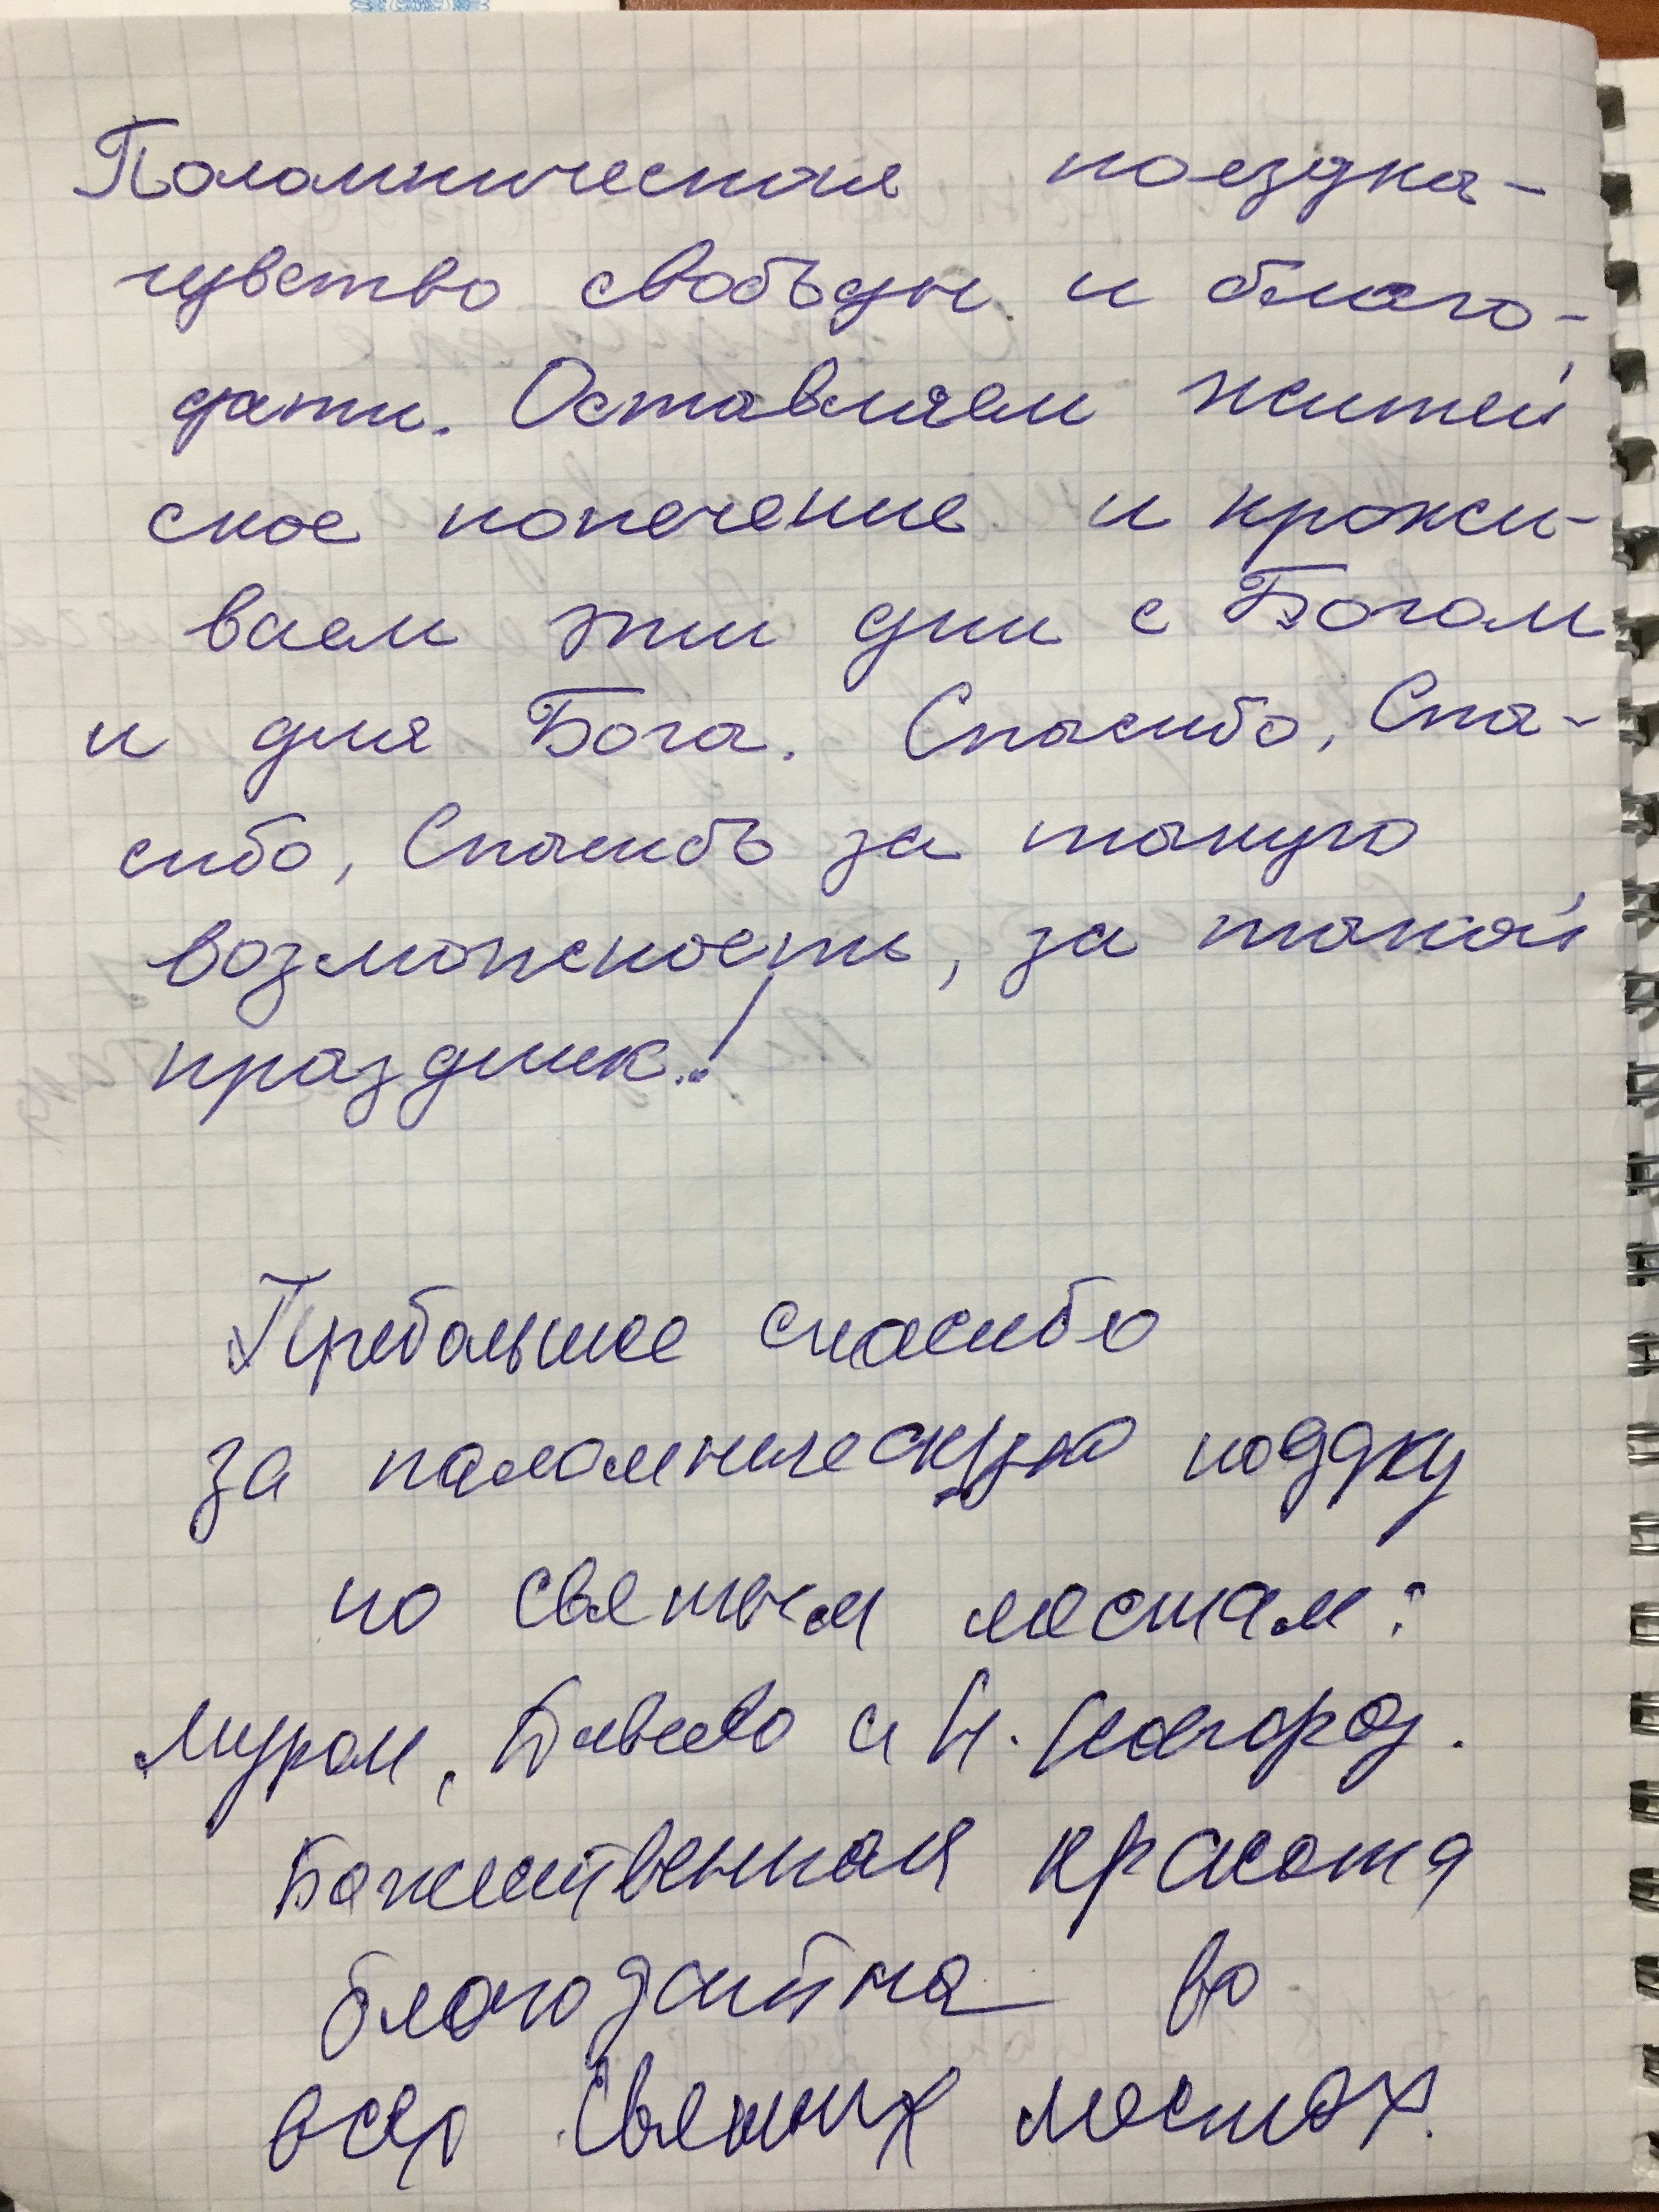 Поломническая поездка-
чувство свободы и благо-
дати. Оставляем житей
ское попечение и прожи-
ваем эти дни с Богом
и для Бога. Спасибо, Спа-
сибо, Спасибо за такую
возможность, за такой
праздник!
Пребольшое спасибо
за паломническую поздку
по святым местам:
Муром, Дивеево и Н. Новгород.
Божественная красота
благодатна во
всех Святых местах.